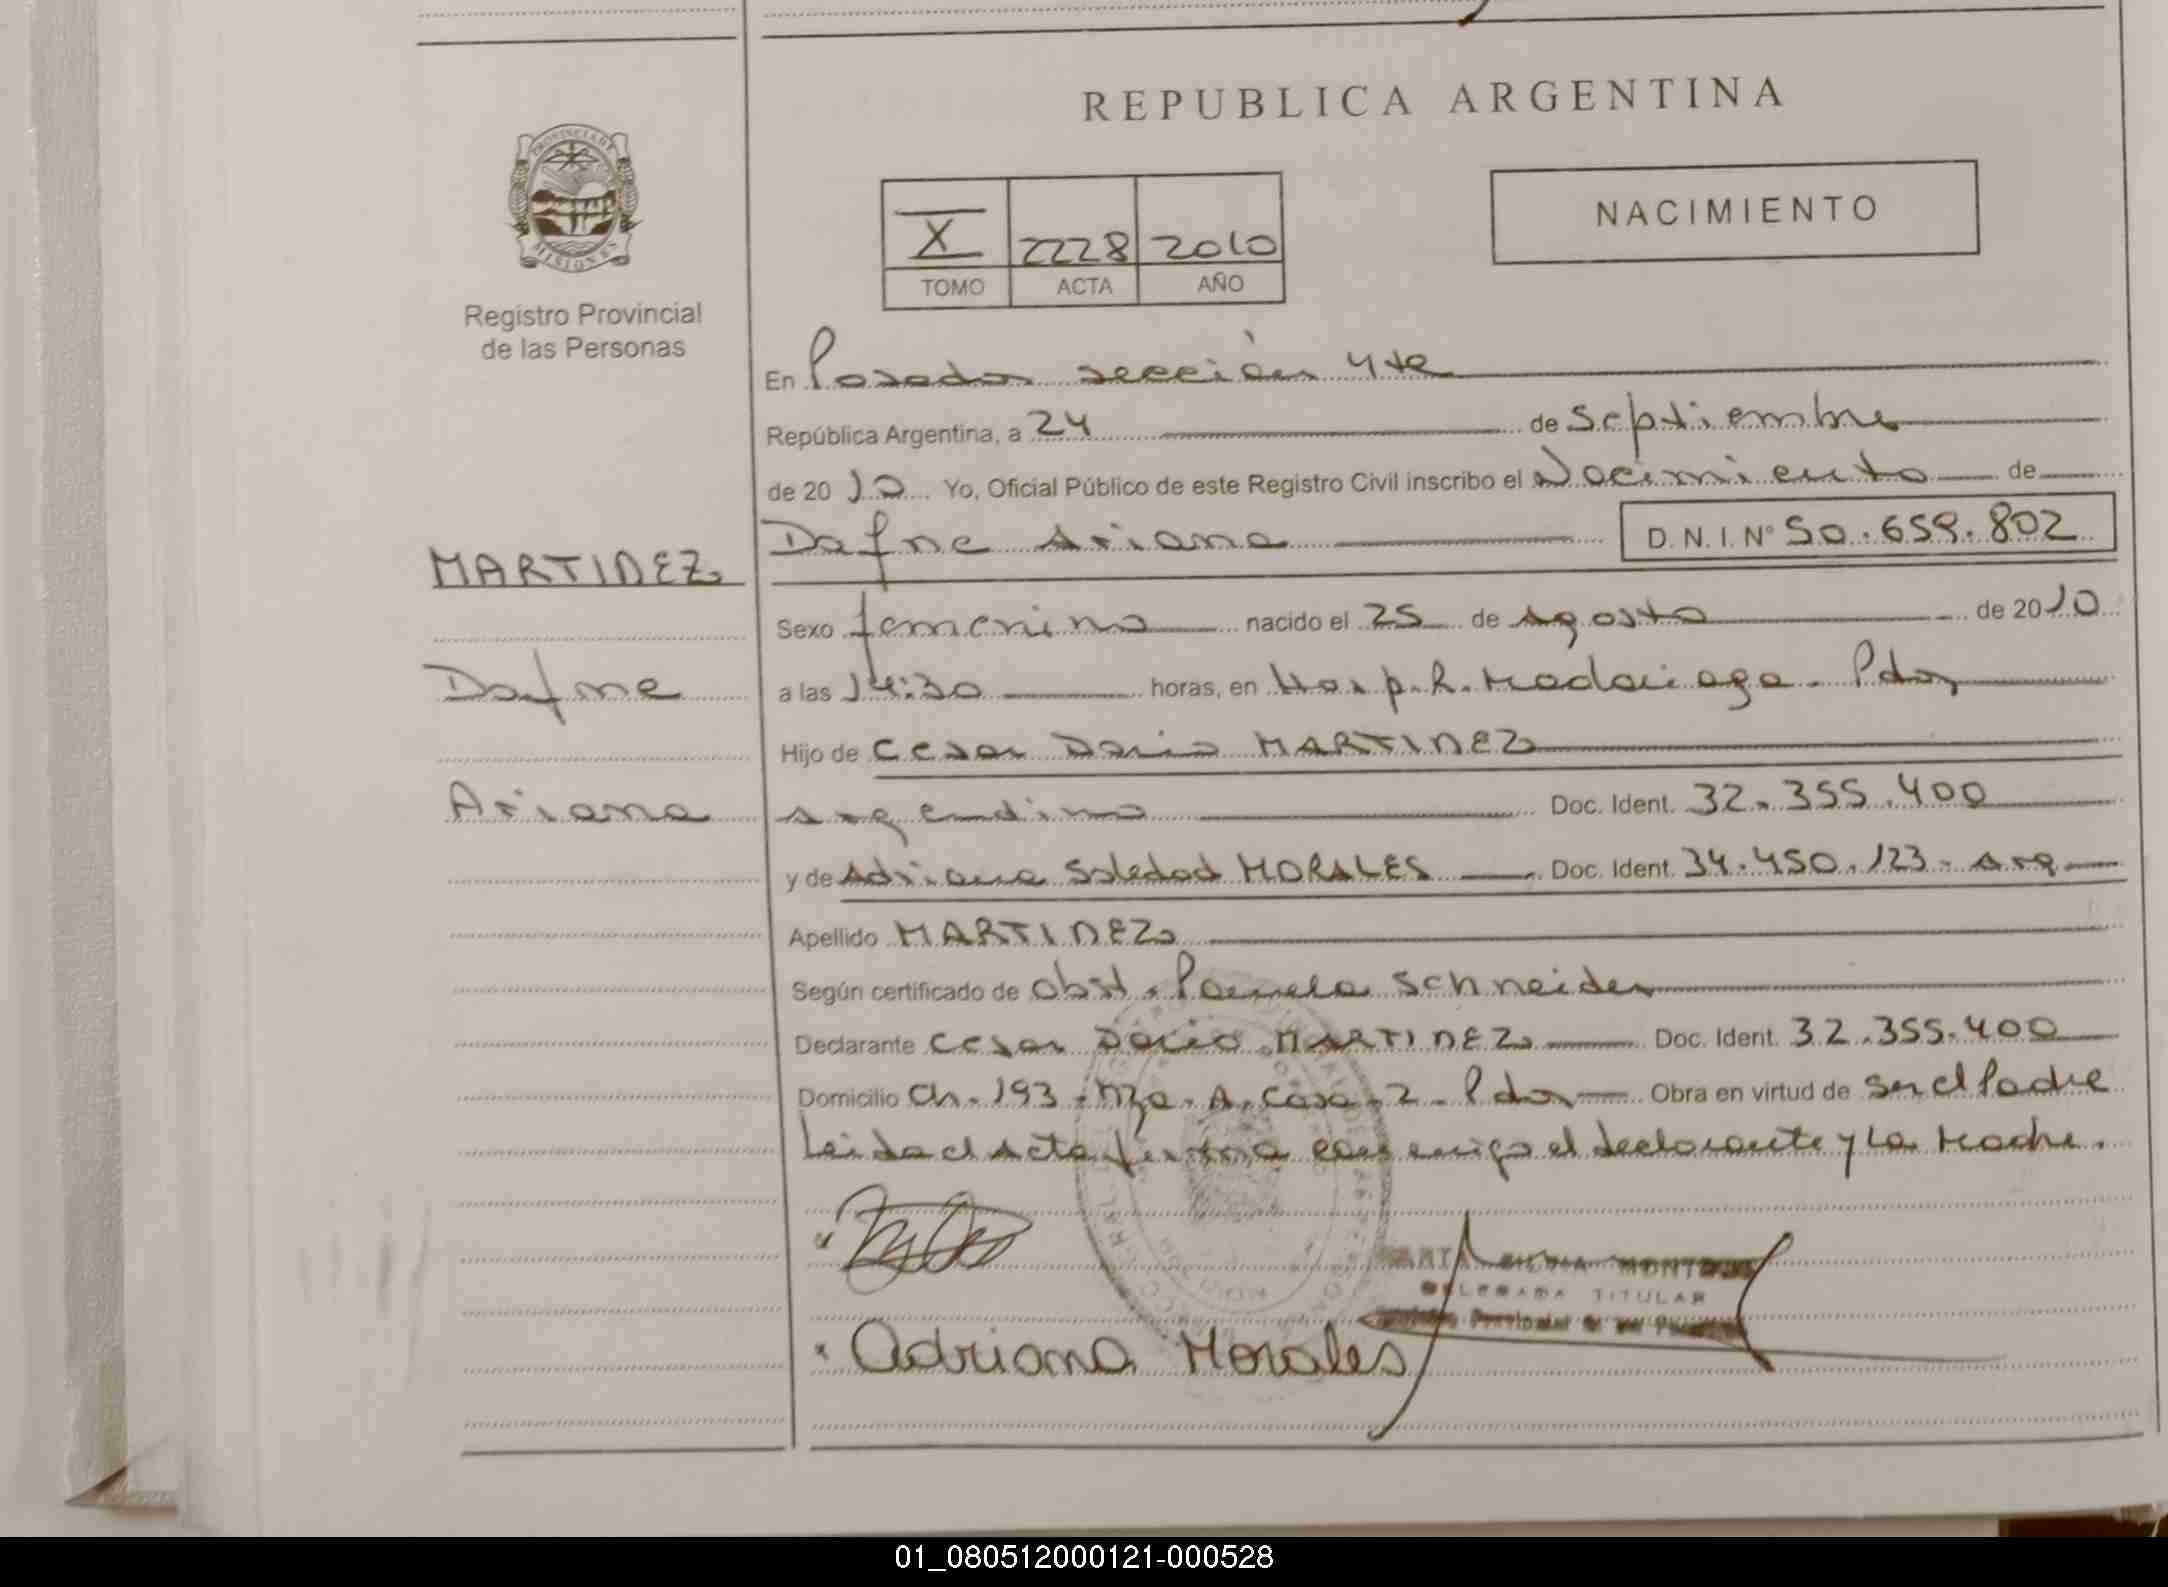 REPUBLICA ARGENTINA
PROVINCIA DE
MISIONES
Registro Provincial
de las Personas
X 2228 2010
TOMO ACTA AÑO
NACIMIENTO
En Posadas sección 4ta
República Argentina, a 24 de Septiembre
de 2010 Yo, Oficial Público de este Registro Civil inscribo el Nacimiento de
Dafne Ariana D.N.I. N° 50.659.802
MARTINEZ
Sexo femenino nacido el 25 de Agosto de 2010
Dafne
a las 14:30 horas, en Hosp. R. Madariaga - Pdas
Hijo de Cesar Dario MARTINEZ
Ariana
Argentino Doc. Ident. 32.355.400
y de Adriana Soledad MORALES Doc. Ident. 34.450.123 - Arg
Apellido MARTINEZ
Según certificado de Obst. Pamela Schneider
Declarante Cesar Dario MARTINEZ Doc. Ident. 32.355.400
Domicilio Ch. 193 - Mza. A. Casa - 2 - Pdas Obra en virtud de Ser el Padre
Leida el Acta firma conmigo el declarante y la Madre.
MONT
DELEGADA TITULAR
Adriana Morales
01_080512000121-000528